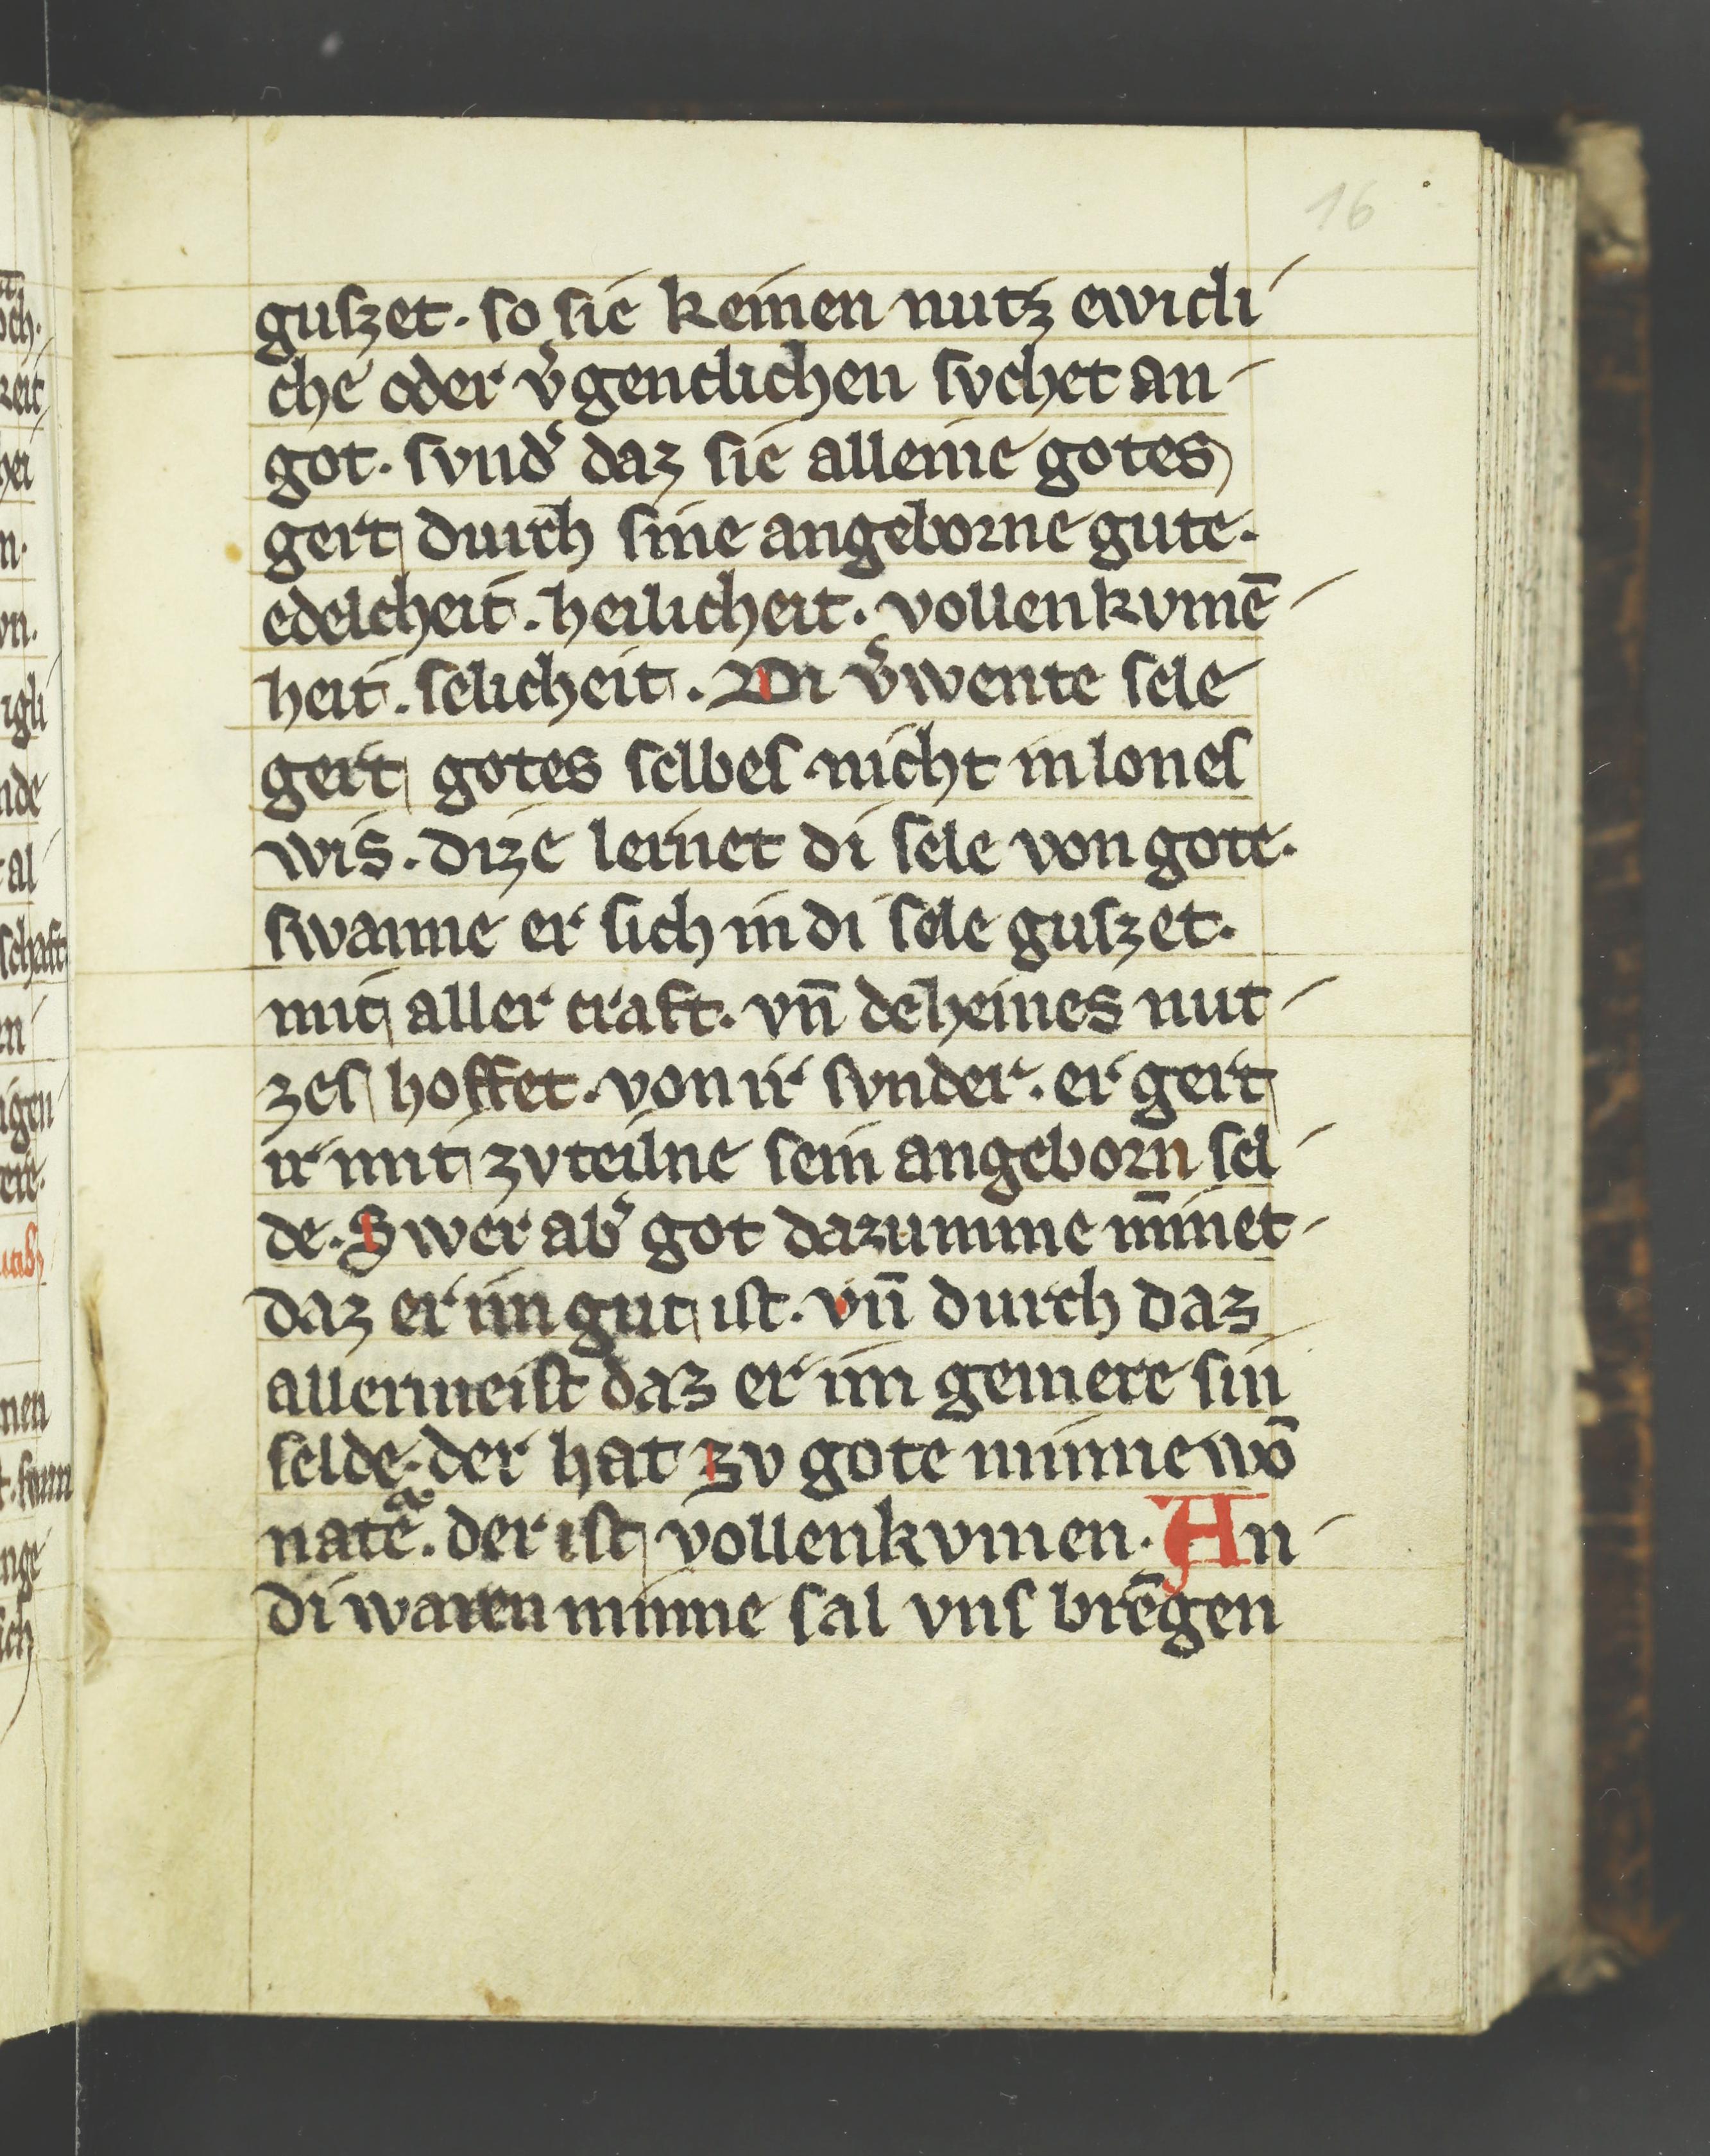 16
guszet. so sie keinen nutz ewicli
che oder v̉genclichen svchet an
got. svndẻ daz sie alleine gotes
gert durch sine angeborne gute.
edelcheit. heilicheit. vollenkvmē
heit. selicheit. Di v̉wente sele
gert gotes selbes. nicht in lones
wis. dize lernet di sele von gote.
swanne er sich in di sele guszet.
mit aller craft. vn̄ deheines nut
zes hoffet. von ir svnder. er gert
ir mit zvteilne sein angeborn sel
de. Swer abẻ got darumme m̄inet
daz er im gut ist. vn̄ durch daz
allermeist daz er im gemere sin
selde. der hat zv gote minne wō
natē. der ist vollenkvmen. An
di waren minne sal vns brēgen